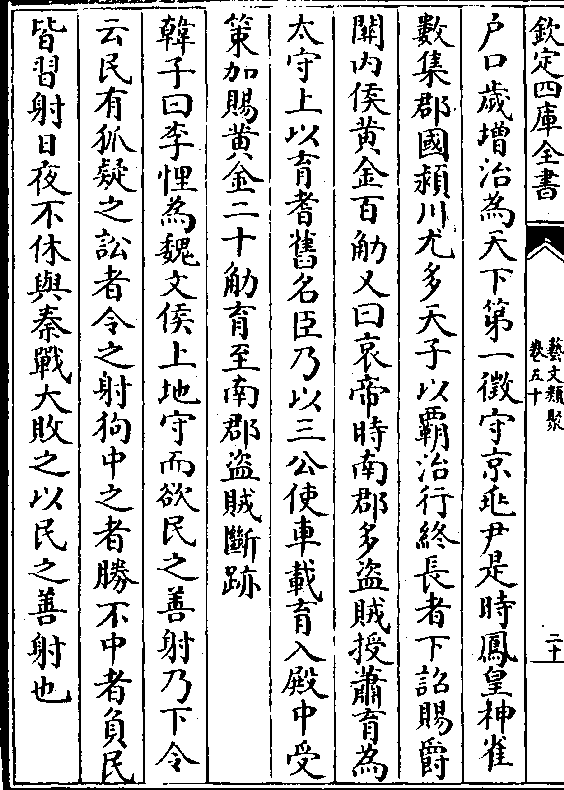 欽定四庫全書
藝文類聚
卷五十
二十
戶口歲增治為天下第一徵守京兆尹是時鳳皇神雀
數集郡國潁川尤多天子以霸治行終長者下詔賜爵
關内侯黄金百觔又曰哀帝時南郡多盜賊授蕭育為
太守上以育耆舊名臣乃以三公使車載育入殿中受
策加賜黄金二十觔育至南郡盜賊斷跡
韓子曰李悝為魏文侯上地守而欲民之善射乃下令
云民有狐疑之訟者令之射狗中之者勝不中者負民
皆習射日夜不休與秦戰大敗之以民之善射也